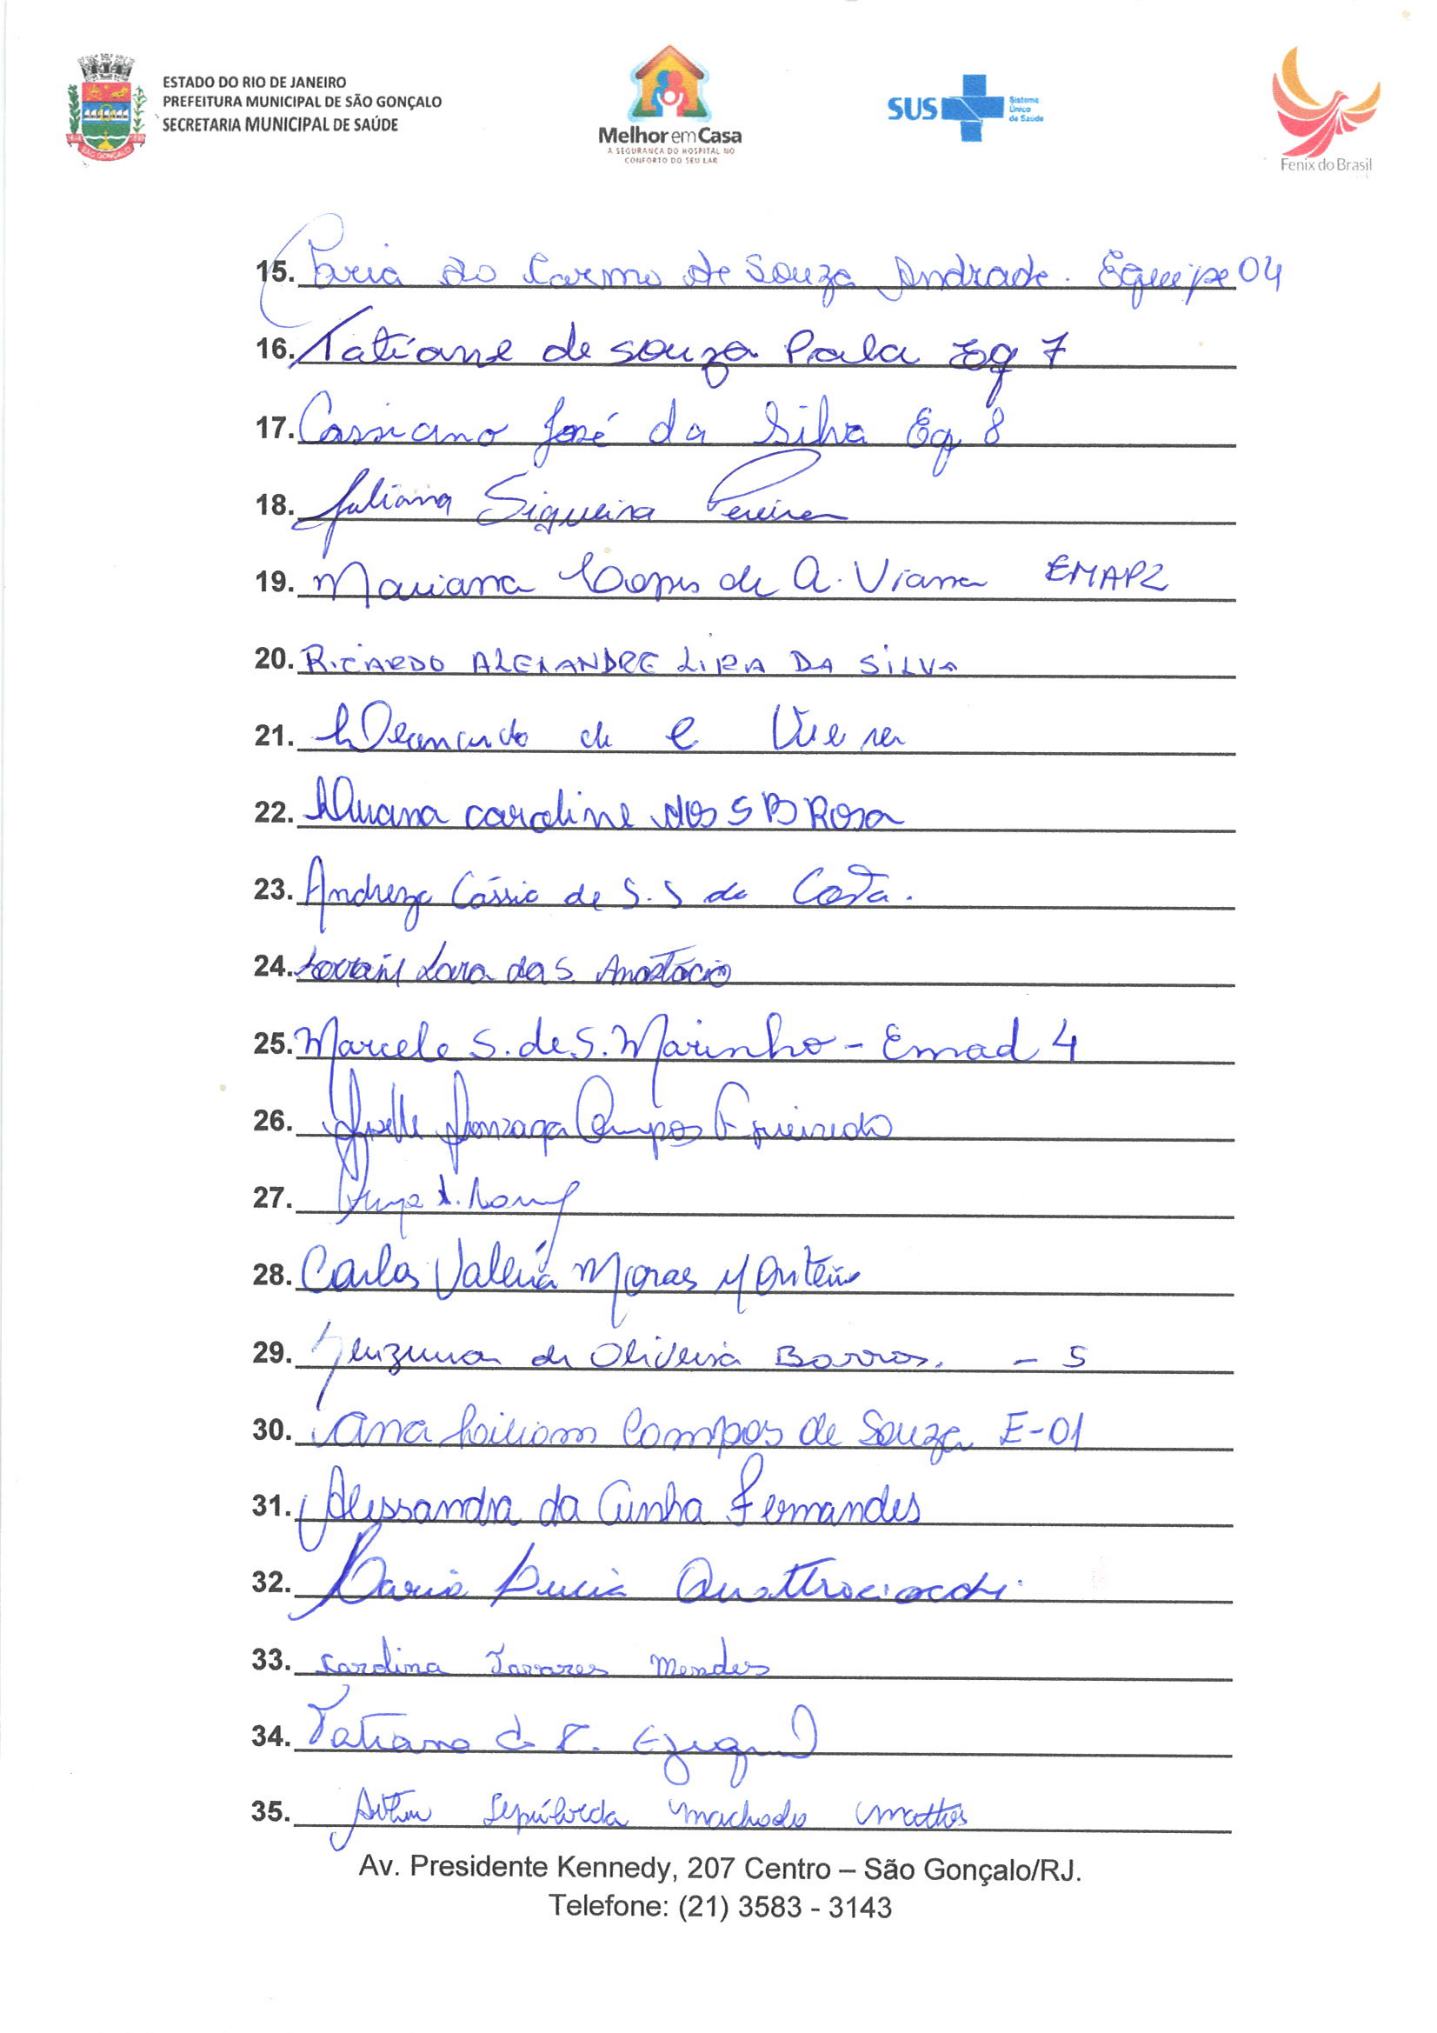 ESTADO DO RIO DE JANEIRO
PREFEITURA MUNICIPAL DE SÃO GONÇALO
SECRETARIA MUNICIPAL DE SAÚDE
SÃO GONÇALO
Melhor em Casa
A SEGURANÇA DO HOSPITAL NO
CONFORTO DO SEU LAR
SUS Sistema
Único
de Saúde
Fenix do Brasil
15. Maria do Carmo de Souza Andrade. Equipe 04
16. Tatiane de souza Paula Eq 7
17. Cassiano José da Silva Eq 8
18. Juliana Siqueira Pereira
19. Mariana Lopes de A. Viana EMAP2
20. RICARDO ALEXANDRE LIRA DA SILVA
21. de C Vieira
22. Luana caroline dos S B Rosa
23. Andreza Cássia de S. S da Costa.
24. Lara da S. Anastácio
25. Marcele S. de S. Marinho - Emad 4
26. Gonzaga Campos Figueiredo
27.
28. Carlos Valéria Moraes Monteiro
29. de Oliveira Barros. - 5
30. Ana Campos de Souza E-01
31. Alessandra da Cunha Fernandes
32. Maria Lucia Quattrociocchi
33. Carolina Tavares Mendes
34. Tatiana
35. Sepúlveda Machado Mattos
Av. Presidente Kennedy, 207 Centro – São Gonçalo/RJ.
Telefone: (21) 3583 - 3143